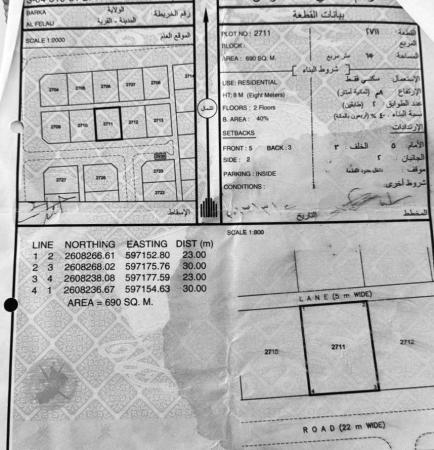 الولاية
BARKA
المدينة - القرية
AL FELAIJ
رقم الخريطة
SCALE 1:2000
الموقع العام
2714
2704
2705
2706
2707
2708
2709
2710
2711
2712
2713
2727
2726
2723
2722
الإسقاط
الشمال
بيانات القطعة
PLOT NO : 2711
٢٧١١
القطعة
BLOCK
المربع
AREA : 690 SQ. M.
متر مربع
٦٩٠
المساحة
شروط البناء
USE: RESIDENTIAL
سكني فقط
الإستعمال
HT: 8 M (Eight Meters)
٨م (ثمانية أمتار)
الإرتفاع
FLOORS : 2 Floors
٢ (طابقين)
عدد الطوابق
B. AREA : 40%
٤٠٪ (أربعون بالمائة)
نسبة البناء
SETBACKS
الإرتدادات
FRONT : 5 BACK : 3
الأمام ٥ الخلف ٣
SIDE : 2
الجانبان ٢
PARKING : INSIDE
موقف داخل حدود القطعة
CONDITIONS :
شروط أخرى
التاريخ
المخطط
LINE NORTHING EASTING DIST (m)
1 2 2608266.61 597152.80 23.00
2 3 2608268.02 597175.76 30.00
3 4 2608238.08 597177.59 23.00
4 1 2608236.67 597154.63 30.00
AREA = 690 SQ. M.
SCALE 1:800
LANE (5 m WIDE)
2710
2711
2712
ROAD (22 m WIDE)